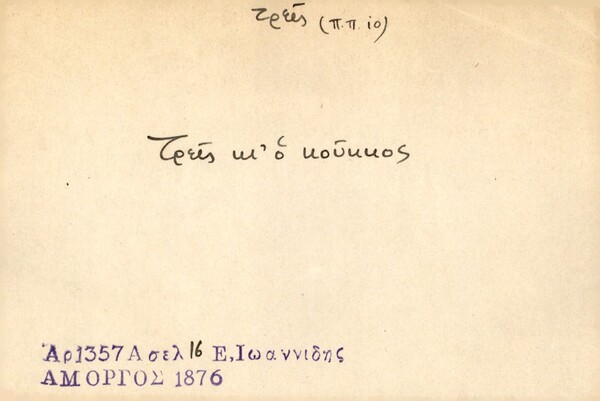 τρεῖς (π.π. ιο)
Τρεῖς κι' ὁ κοῦκκος
Ἀρ1357Α σελ 16 Ε, Ιωαννιδης
ΑΜΟΡΓΟΣ 1876